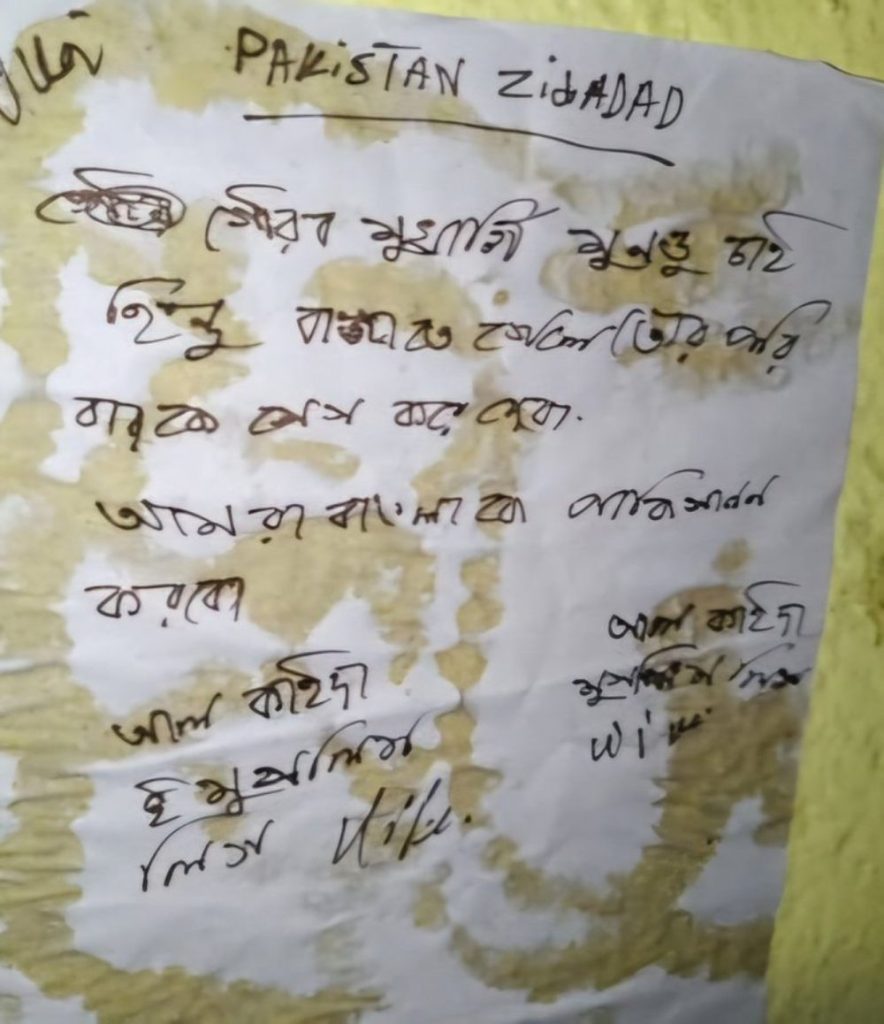 PAKiSTAN ZidADAD
গৌরব মুখার্জি মুন্ডু চাই
হিন্দু বাঁচাতে গেলে তোর পরি
বারকে শেষ করে দেব.
আমরা বাংলাকে পাকিস্তান
করবো
আল কাইদা
মুসলিম লিগ
আল কাইদা
ই মুসলিম
লিগ